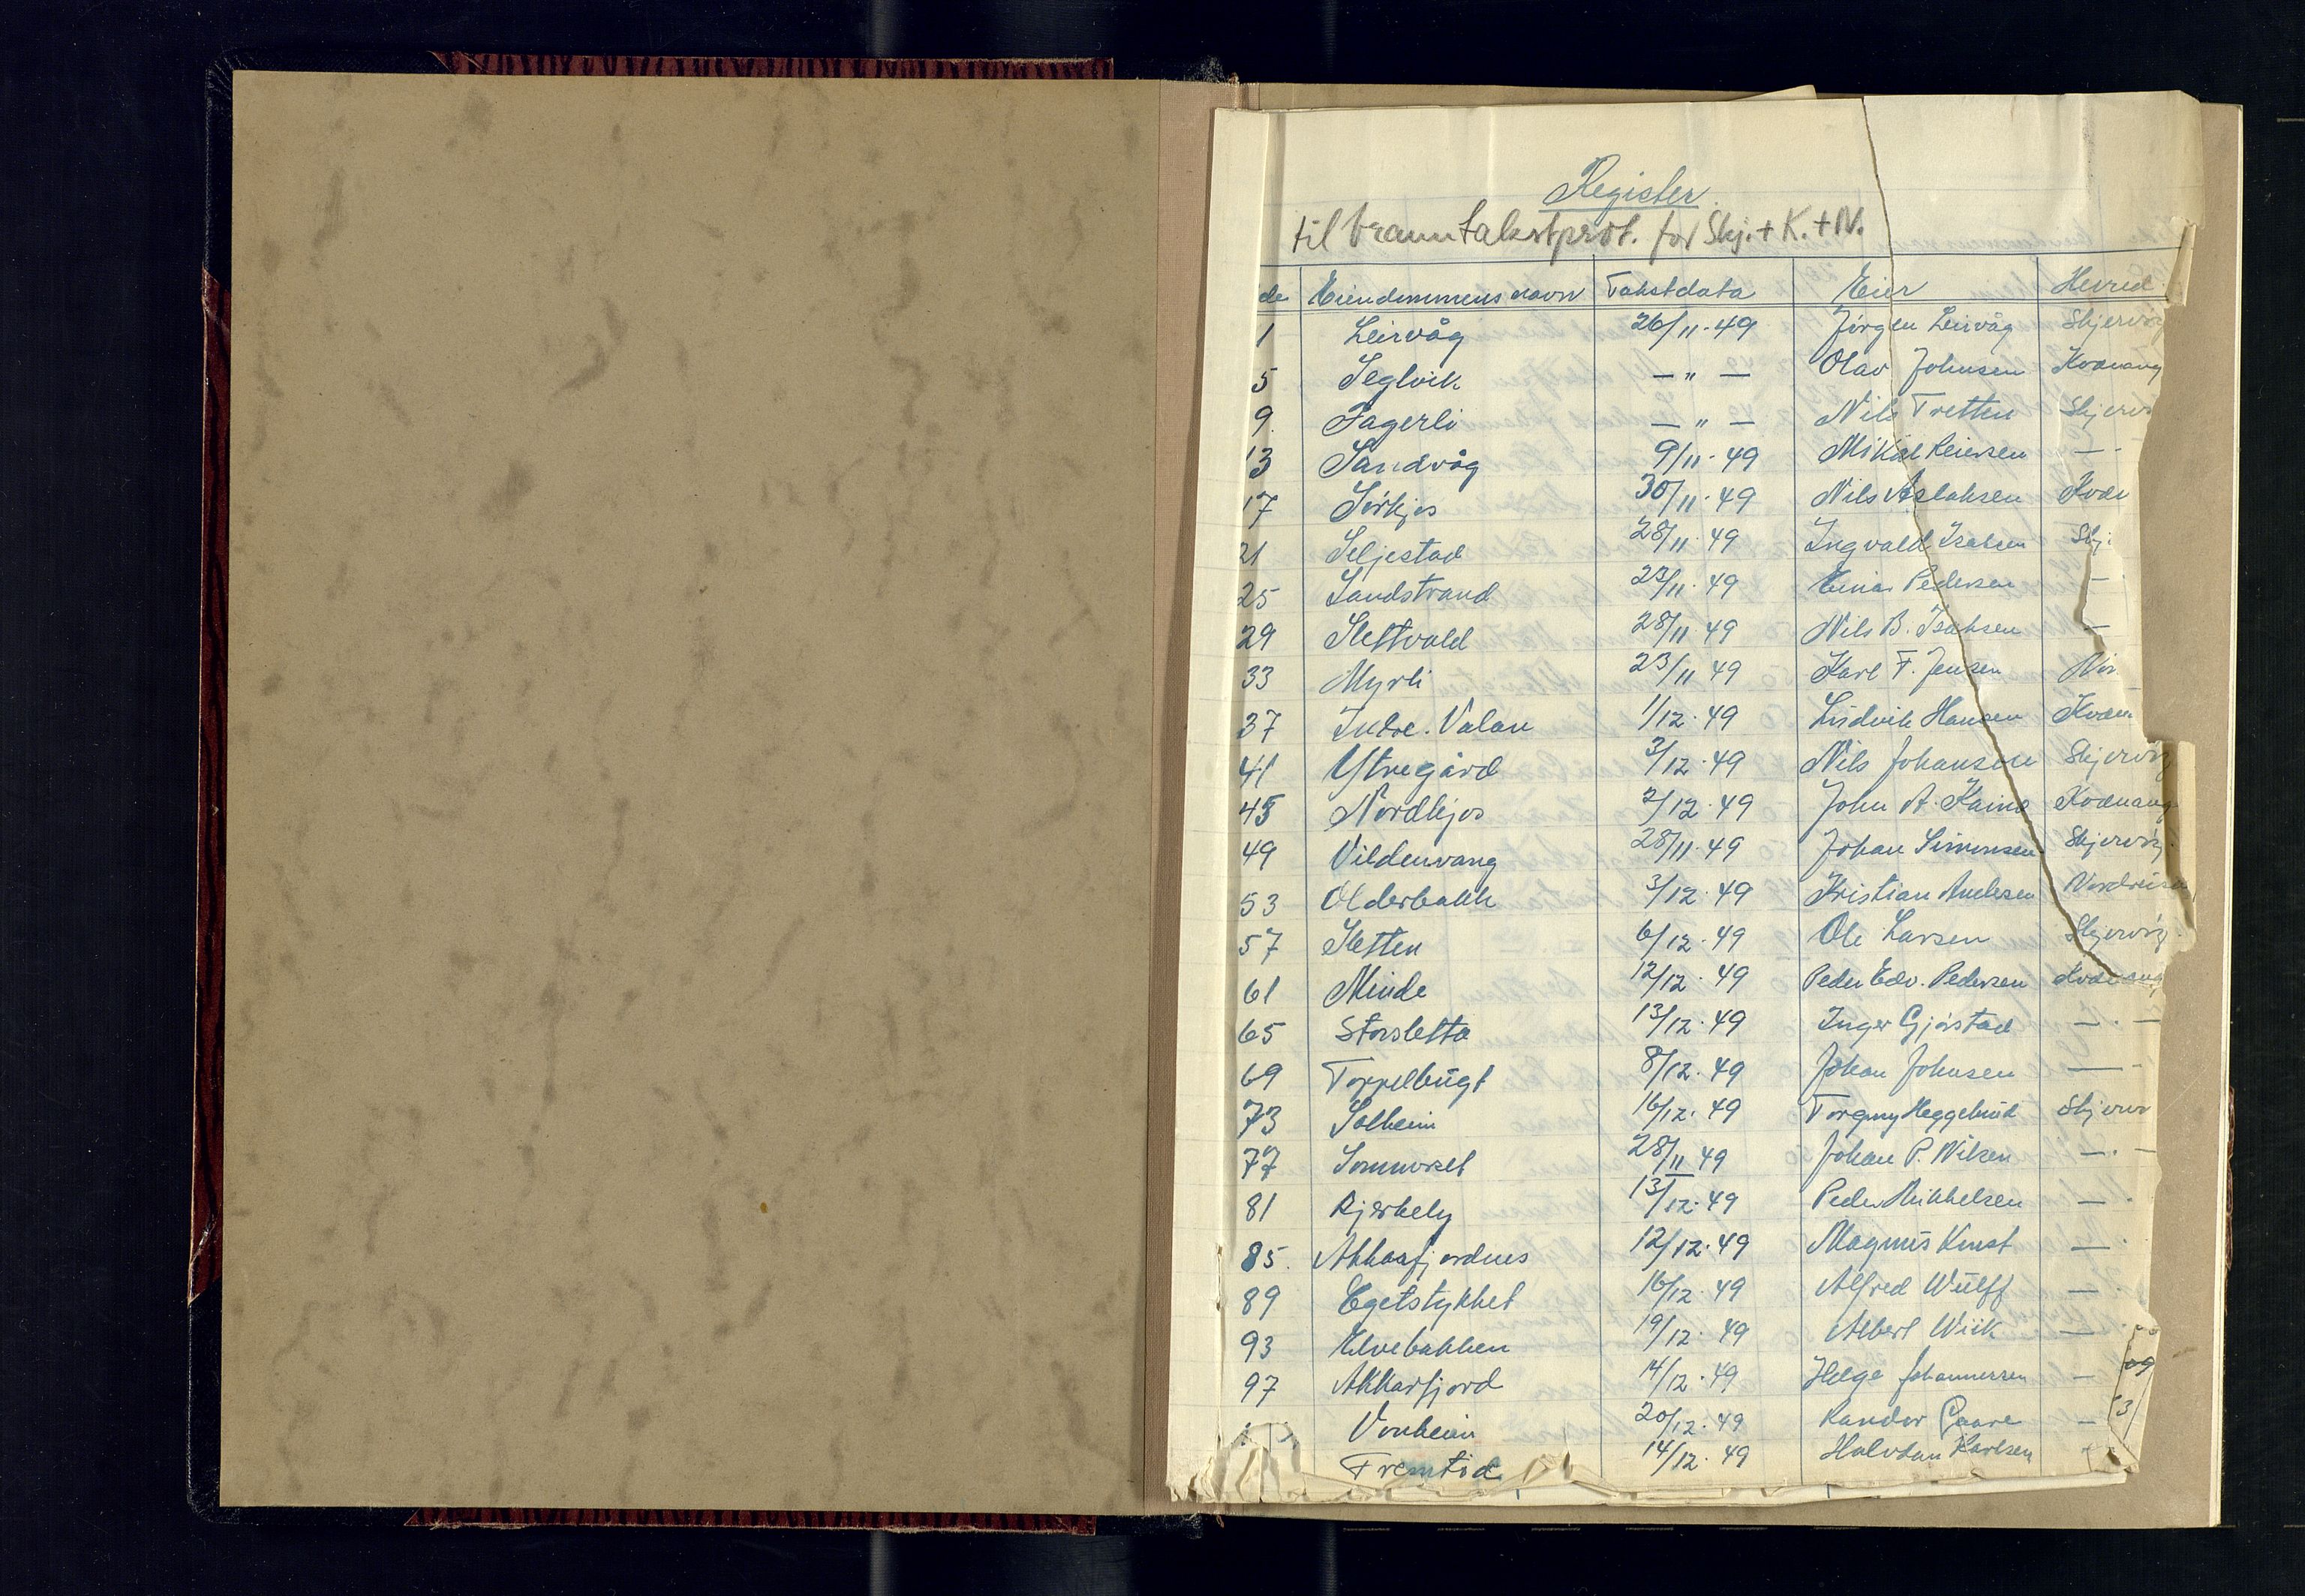 Register
til branntakstprot. for Skj. + K. + N.
de Eiendommens navn Takstdata Eier Herred
1 Leirvåg 26/11·49 Jörgen Leirvåg Skjervöy
5 Seglvik — " — Olav Johnsen Kvænang
9 Fagerli — " — Nils Tretten Skjerv
13 Sandvåg 9/11·49 Mikal Reiersen —
17 Sörkjos 30/11·49 Nils Aslaksen Kvæn
21 Seljestad 28/11·49 Ingvald Isaksen Skj.
25 Sandstrand 23/11·49 Einar Pedersen —
29 Slettvold 28/11·49 Nils B. Isaksen —
33 Myrli 23/11 49 Karl F. Jensen Nor
37 Indre. Valan 1/12·49 Ludvik Hansen Kvæn
41 Ytregård 3/12·49 Nils Johansen Skjervöy
45 Nordkjos 2/12·49 John A. Kaino Kvænang
49 Vildenvang 28/11·49 Johan Simonsen Skjervöy
53 Olderbakk 3/12·49 Kristian Andersen Nordreisa
57 Sletten 6/12·49 Ole Larsen Skjervöy
61 Minde 12/12·49 Peder Edv. Pedersen Kvænang
65 Storsletta 13/12·49 Inger Gjöstad — · —
69 Toppelbugt 8/12·49 Johan Johnsen —
73 Solheim 16/12·49 Torgny Heggelund Skjerv
77 Sommerset 28/11 49 Johan P. Nilsen — · —
81 Bjerkely 13/12·49 Peder Mikkelsen — ·
85. Akkarfjordnes 12/12·49 Magnus Kust — ·
89 Egetstykket 16/12·49 Alfred Wulff — ·
93 Elvebakken 19/12·49 Albert Wiik —
97 Akkarfjord 14/12·49 Helge Johannessen —
Vonheim 20/12·49 Kandor Gaare —
Fremtid 14/12·49 Halvdan Karlsen